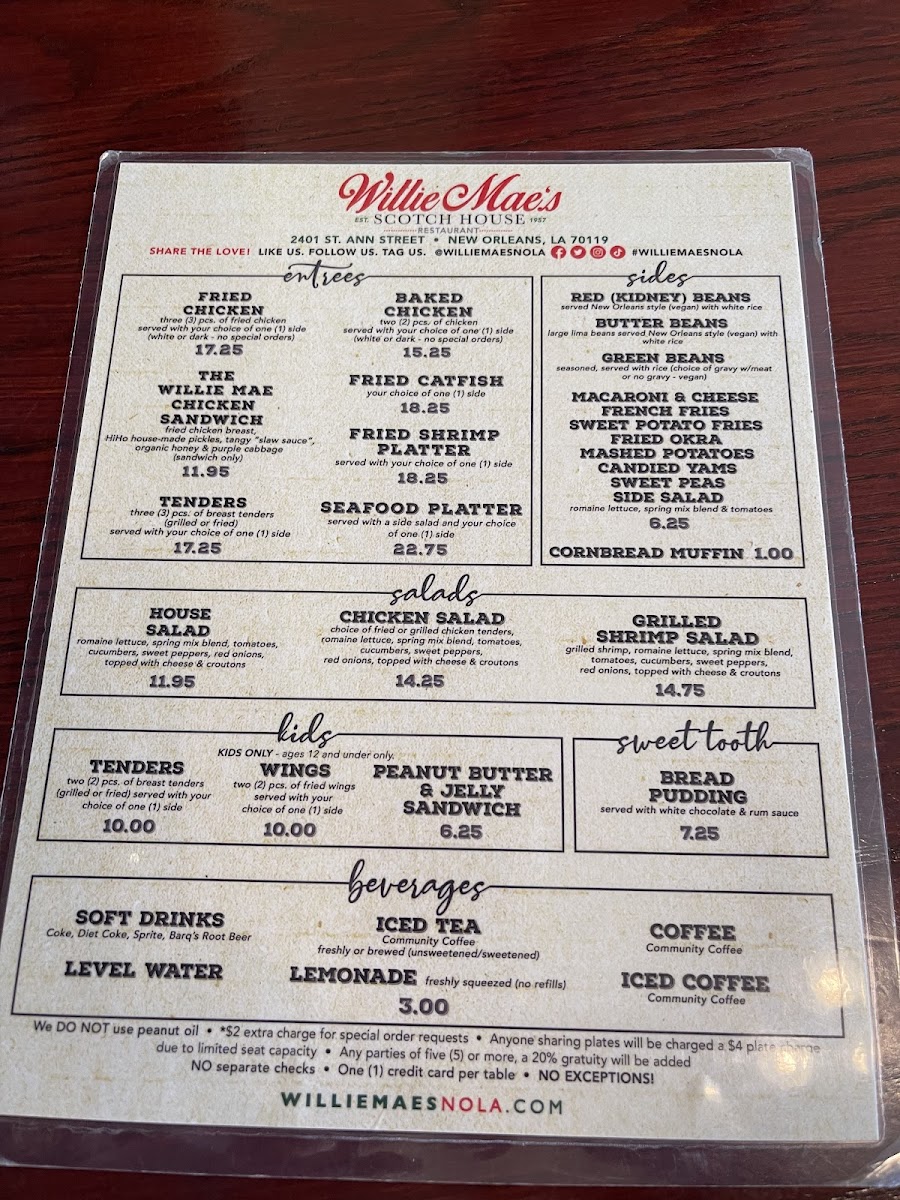 Willie Mae's
EST. SCOTCH HOUSE 1957
RESTAURANT
2401 ST. ANN STREET • NEW ORLEANS, LA 70119
SHARE THE LOVE! LIKE US. FOLLOW US. TAG US. @WILLIEMAESNOLA #WILLIEMAESNOLA
entrees
FRIED
CHICKEN
three (3) pcs. of fried chicken
served with your choice of one (1) side
(white or dark - no special orders)
17.25
THE
WILLIE MAE
CHICKEN
SANDWICH
fried chicken breast,
HiHo house-made pickles, tangy "slaw sauce",
organic honey & purple cabbage
(sandwich only)
11.95
TENDERS
three (3) pcs. of breast tenders
(grilled or fried)
served with your choice of one (1) side
17.25
BAKED
CHICKEN
two (2) pcs. of chicken
served with your choice of one (1) side
(white or dark - no special orders)
15.25
FRIED CATFISH
your choice of one (1) side
18.25
FRIED SHRIMP
PLATTER
served with your choice of one (1) side
18.25
SEAFOOD PLATTER
served with a side salad and your choice
of one (1) side
22.75
sides
RED (KIDNEY) BEANS
served New Orleans style (vegan) with white rice
BUTTER BEANS
large lima beans served New Orleans style (vegan) with
white rice
GREEN BEANS
seasoned, served with rice (choice of gravy w/meat
or no gravy - vegan)
MACARONI & CHEESE
FRENCH FRIES
SWEET POTATO FRIES
FRIED OKRA
MASHED POTATOES
CANDIED YAMS
SWEET PEAS
SIDE SALAD
romaine lettuce, spring mix blend & tomatoes
6.25
CORNBREAD MUFFIN 1.00
salads
HOUSE
SALAD
romaine lettuce, spring mix blend, tomatoes,
cucumbers, sweet peppers, red onions,
topped with cheese & croutons
11.95
CHICKEN SALAD
choice of fried or grilled chicken tenders,
romaine lettuce, spring mix blend, tomatoes,
cucumbers, sweet peppers,
red onions, topped with cheese & croutons
14.25
GRILLED
SHRIMP SALAD
grilled shrimp, romaine lettuce, spring mix blend,
tomatoes, cucumbers, sweet peppers,
red onions, topped with cheese & croutons
14.75
kids
KIDS ONLY - ages 12 and under only.
TENDERS
two (2) pcs. of breast tenders
(grilled or fried) served with your
choice of one (1) side
10.00
WINGS
two (2) pcs. of fried wings
served with your
choice of one (1) side
10.00
PEANUT BUTTER
& JELLY
SANDWICH
6.25
sweet tooth
BREAD
PUDDING
served with white chocolate & rum sauce
7.25
beverages
SOFT DRINKS
Coke, Diet Coke, Sprite, Barq's Root Beer
LEVEL WATER
ICED TEA
Community Coffee
freshly or brewed (unsweetened/sweetened)
LEMONADE freshly squeezed (no refills)
3.00
COFFEE
Community Coffee
ICED COFFEE
Community Coffee
We DO NOT use peanut oil • *$2 extra charge for special order requests • Anyone sharing plates will be charged a $4 plate charge
due to limited seat capacity • Any parties of five (5) or more, a 20% gratuity will be added
NO separate checks • One (1) credit card per table • NO EXCEPTIONS!
WILLIEMAESNOLA.COM